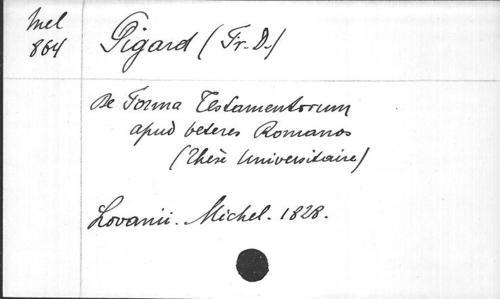 Mel
864
Pigard (Fr. D.)
De Forma Testamentorum
apud veteres Romanos
(Thèse Universitaire)
Lovanii. Michel. 1828.